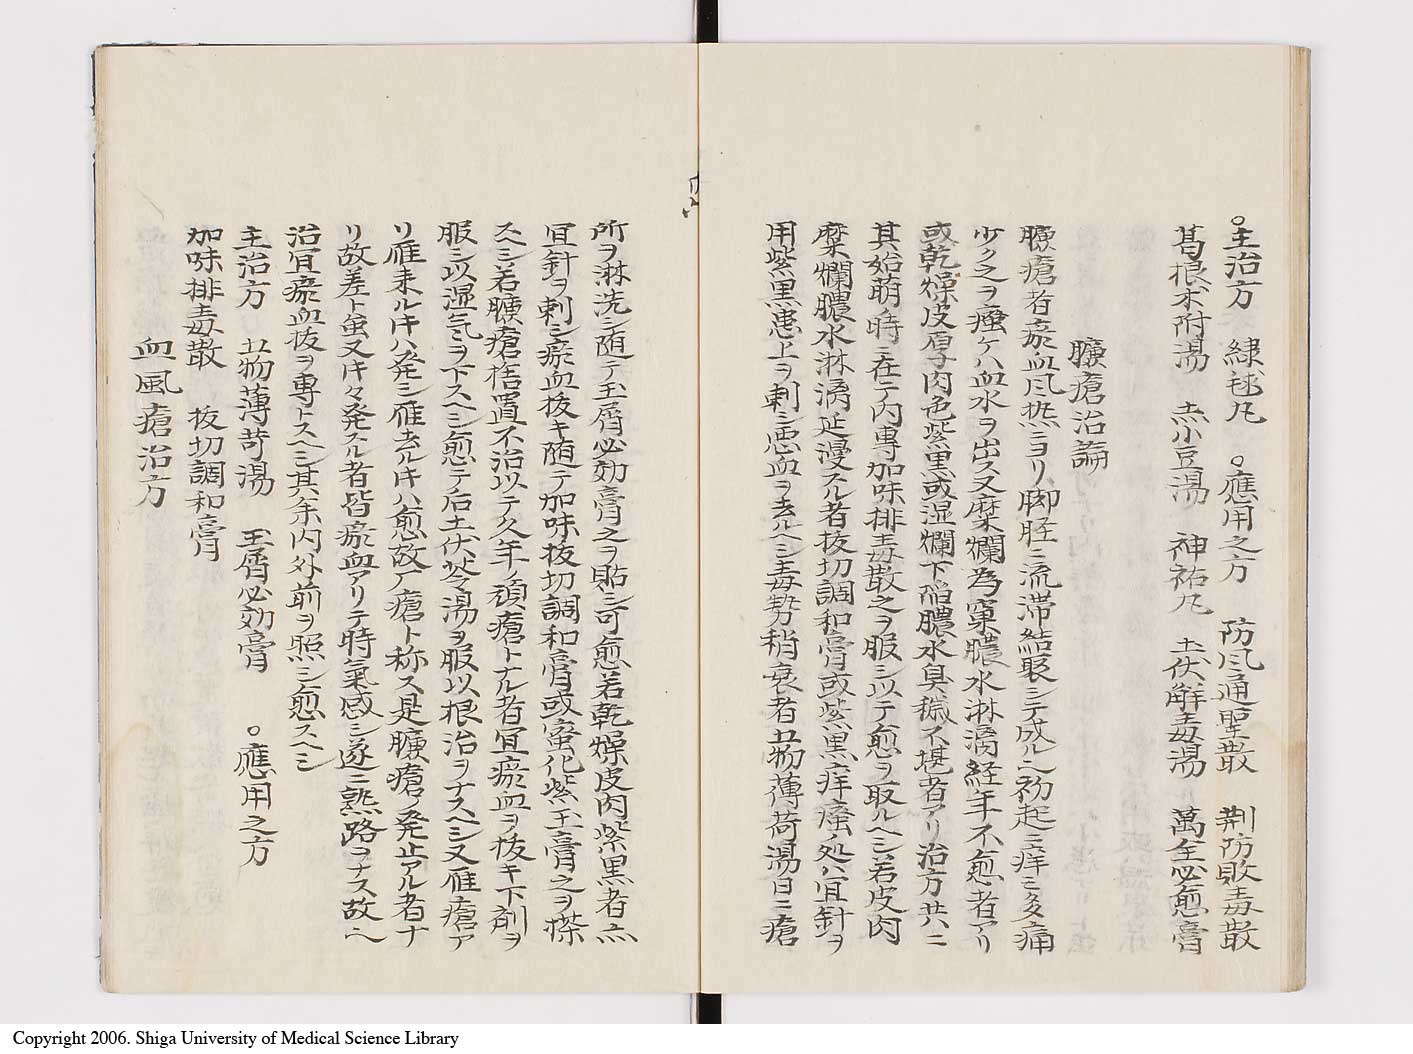 ○主治方　緑毬丸　○應用之方　防風通聖散　荆防敗毒散
葛根朮附湯　赤小豆湯　神祐丸　土伏解毒湯　萬全必愈膏
臁瘡治論
臁瘡者瘀血风热ニヨリ脚脛ニ流滞結聚シテ成ル也初起ニ痒ミ多痛
少ク之ヲ瘙ケハ血水ヲ出ス又糜爛為窠膿水淋漓経年不愈者アリ
或乾燥皮厚肉色紫黒或湿爛下陥膿水臭穢不堪者アリ治方共ニ
其始萌時ニ在テ内專加味排毒散之ヲ服シ以テ愈ヲ取ルヘシ若皮肉
糜爛膿水淋漓延漫スル者抜切調和膏或紫黒痒瘙処ハ宜針ヲ
用紫黒患上ヲ刺シ悪血ヲ去ルヘシ毒勢稍衰者五物薄荷湯日ニ瘡
所ヲ淋洗シ随テ玉屑必効膏之ヲ貼シ可愈若乾燥皮肉紫黒者点
宜針ヲ刺シ瘀血抜キ随テ加味抜切調和膏或蜜化紫玉膏之ヲ搽
スヘシ若臁瘡捨置不治以テ久年ノ頑瘡トナル者宜瘀血ヲ抜キ下剤ヲ
服シ以湿气ヲ下スヘシ愈テ后土伏苓湯ヲ服以根治ヲナスヘシ又雁瘡ア
リ雁来ル𪜈ハ発シ雁去ル𪜈ハ愈故ニ瘡ト称ス是臁瘡ノ発止アル者ナ
リ故差ト虽又𪜈々発スル者皆瘀血アリテ時氣感シ遂ニ熟路ヲナス故也
治宜瘀血抜ヲ專トスヘシ其余内外前ヲ照シ愈スヘシ
主治方　五物薄荷湯　玉屑必効膏　○應用之方
加味排毒散　抜切調和膏
血風瘡治方